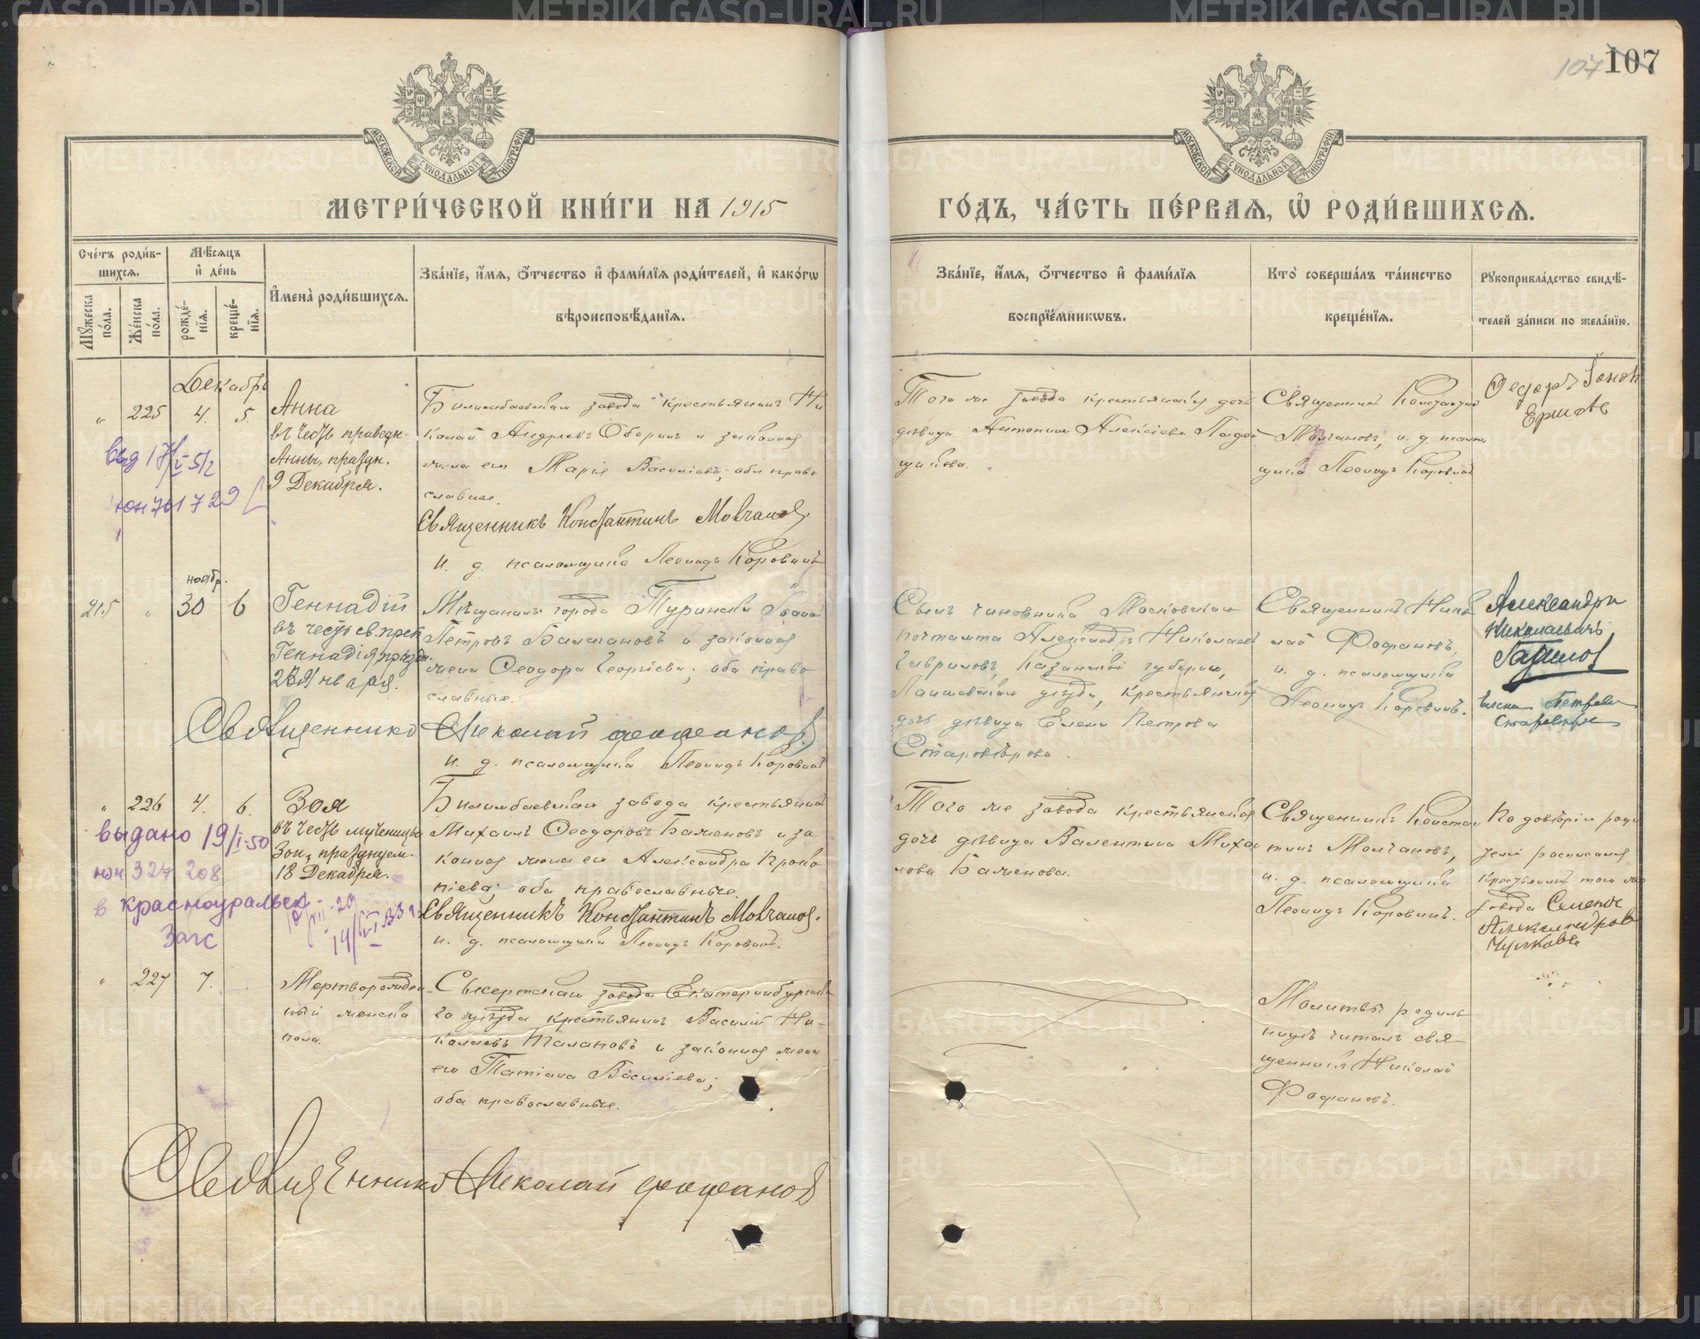 107
МЕТРИЧЕСКОЙ КНИГИ НА 1915
ГОДЪ, ЧАСТЬ ПЕРВАЯ, Ѡ РОДИВШИХСЯ.
Счетъ родив-
шихся.
Мѣсяцъ
и день
Имена родившихся.
Званіе, имя, отчество и фамилія родителей, и какогѡ
вѣроисповѣданія.
Мужеска
пола.
Женска
пола.
рожде-
нія.
креще-
нія.
Званіе, имя, отчество и фамилія
воспріемникѡвъ.
Кто совершалъ таинство
крещенія.
Рукоприкладство свидѣ-
телей записи по желанію.
Декабрь
" 225 4. 5.
Анна
въ честь праведн.
Анны, праздн.
9 Декабря.
Билимбаевскаго завода крестьянинъ Ни
колай Андреевъ и законная
жена его Марія Васильева, оба право
славные.
Священникъ Константинъ Молчановъ
и. д. псаломщика Леонидъ Коровинъ
Того же завода крестьянская дочь
дѣвица Антонина Алексіева
Священникъ Константинъ
Молчановъ, и. д. псалом
щика Леонидъ Коровинъ
Федоръ
215 " ноябр. 30 6
Геннадій
въ честь св. преп.
Геннадія, праздн.
Мѣщанинъ города Туринска Иванъ
Петровъ и законная
жена Ѳеодора Георгіева; оба право
славные.
Священникъ Николай Фофановъ
и. д. псаломщика Леонидъ Коровинъ
Сынъ чиновника Московскаго
почтамта Александръ Николаевъ
Гавриловъ, Казанской губерніи,
Лаишевскаго уѣзда, крестьянская
дочь дѣвица Елена Петрова
Староверова.
Священникъ Нико
лай Фофановъ,
и. д. псаломщика
Леонидъ Коровинъ.
Александръ
Николаевичъ
Елена Петрова
" 226 4. 6.
Зоя
въ честь мученицы
Зои, празднуем.
18 Декабря.
выдано 19/I-50
нон 327 208
в красноуральск
Загс
Билимбаевскаго завода крестьянинъ
Михаилъ Ѳеодоровъ Баженовъ и за
конная жена его Александра Проко
піева; оба православные.
Священникъ Константинъ Молчановъ.
и. д. псаломщика Леонидъ Коровинъ.
Того же завода крестьянская
дочь дѣвица Валентина Михаи
лова Баженова.
Священникъ Констан
тинъ Молчановъ,
и. д. псаломщика
Леонидъ Коровинъ.
По довѣрію роди
телей росписался
крестьянинъ того же
завода Семенъ
Александровъ
" 227 7.
Мертворожден
ный женска
пола.
Сысертскаго завода Екатеринбургска
го уѣзда крестьянинъ Василій Ни-
колаевъ Талановъ и законная жена
его Татіана Василіева;
оба православные.
Молитвы родиль
ницѣ читалъ свя-
щенникъ Николай
Фофановъ.
Священникъ Николай Фофановъ